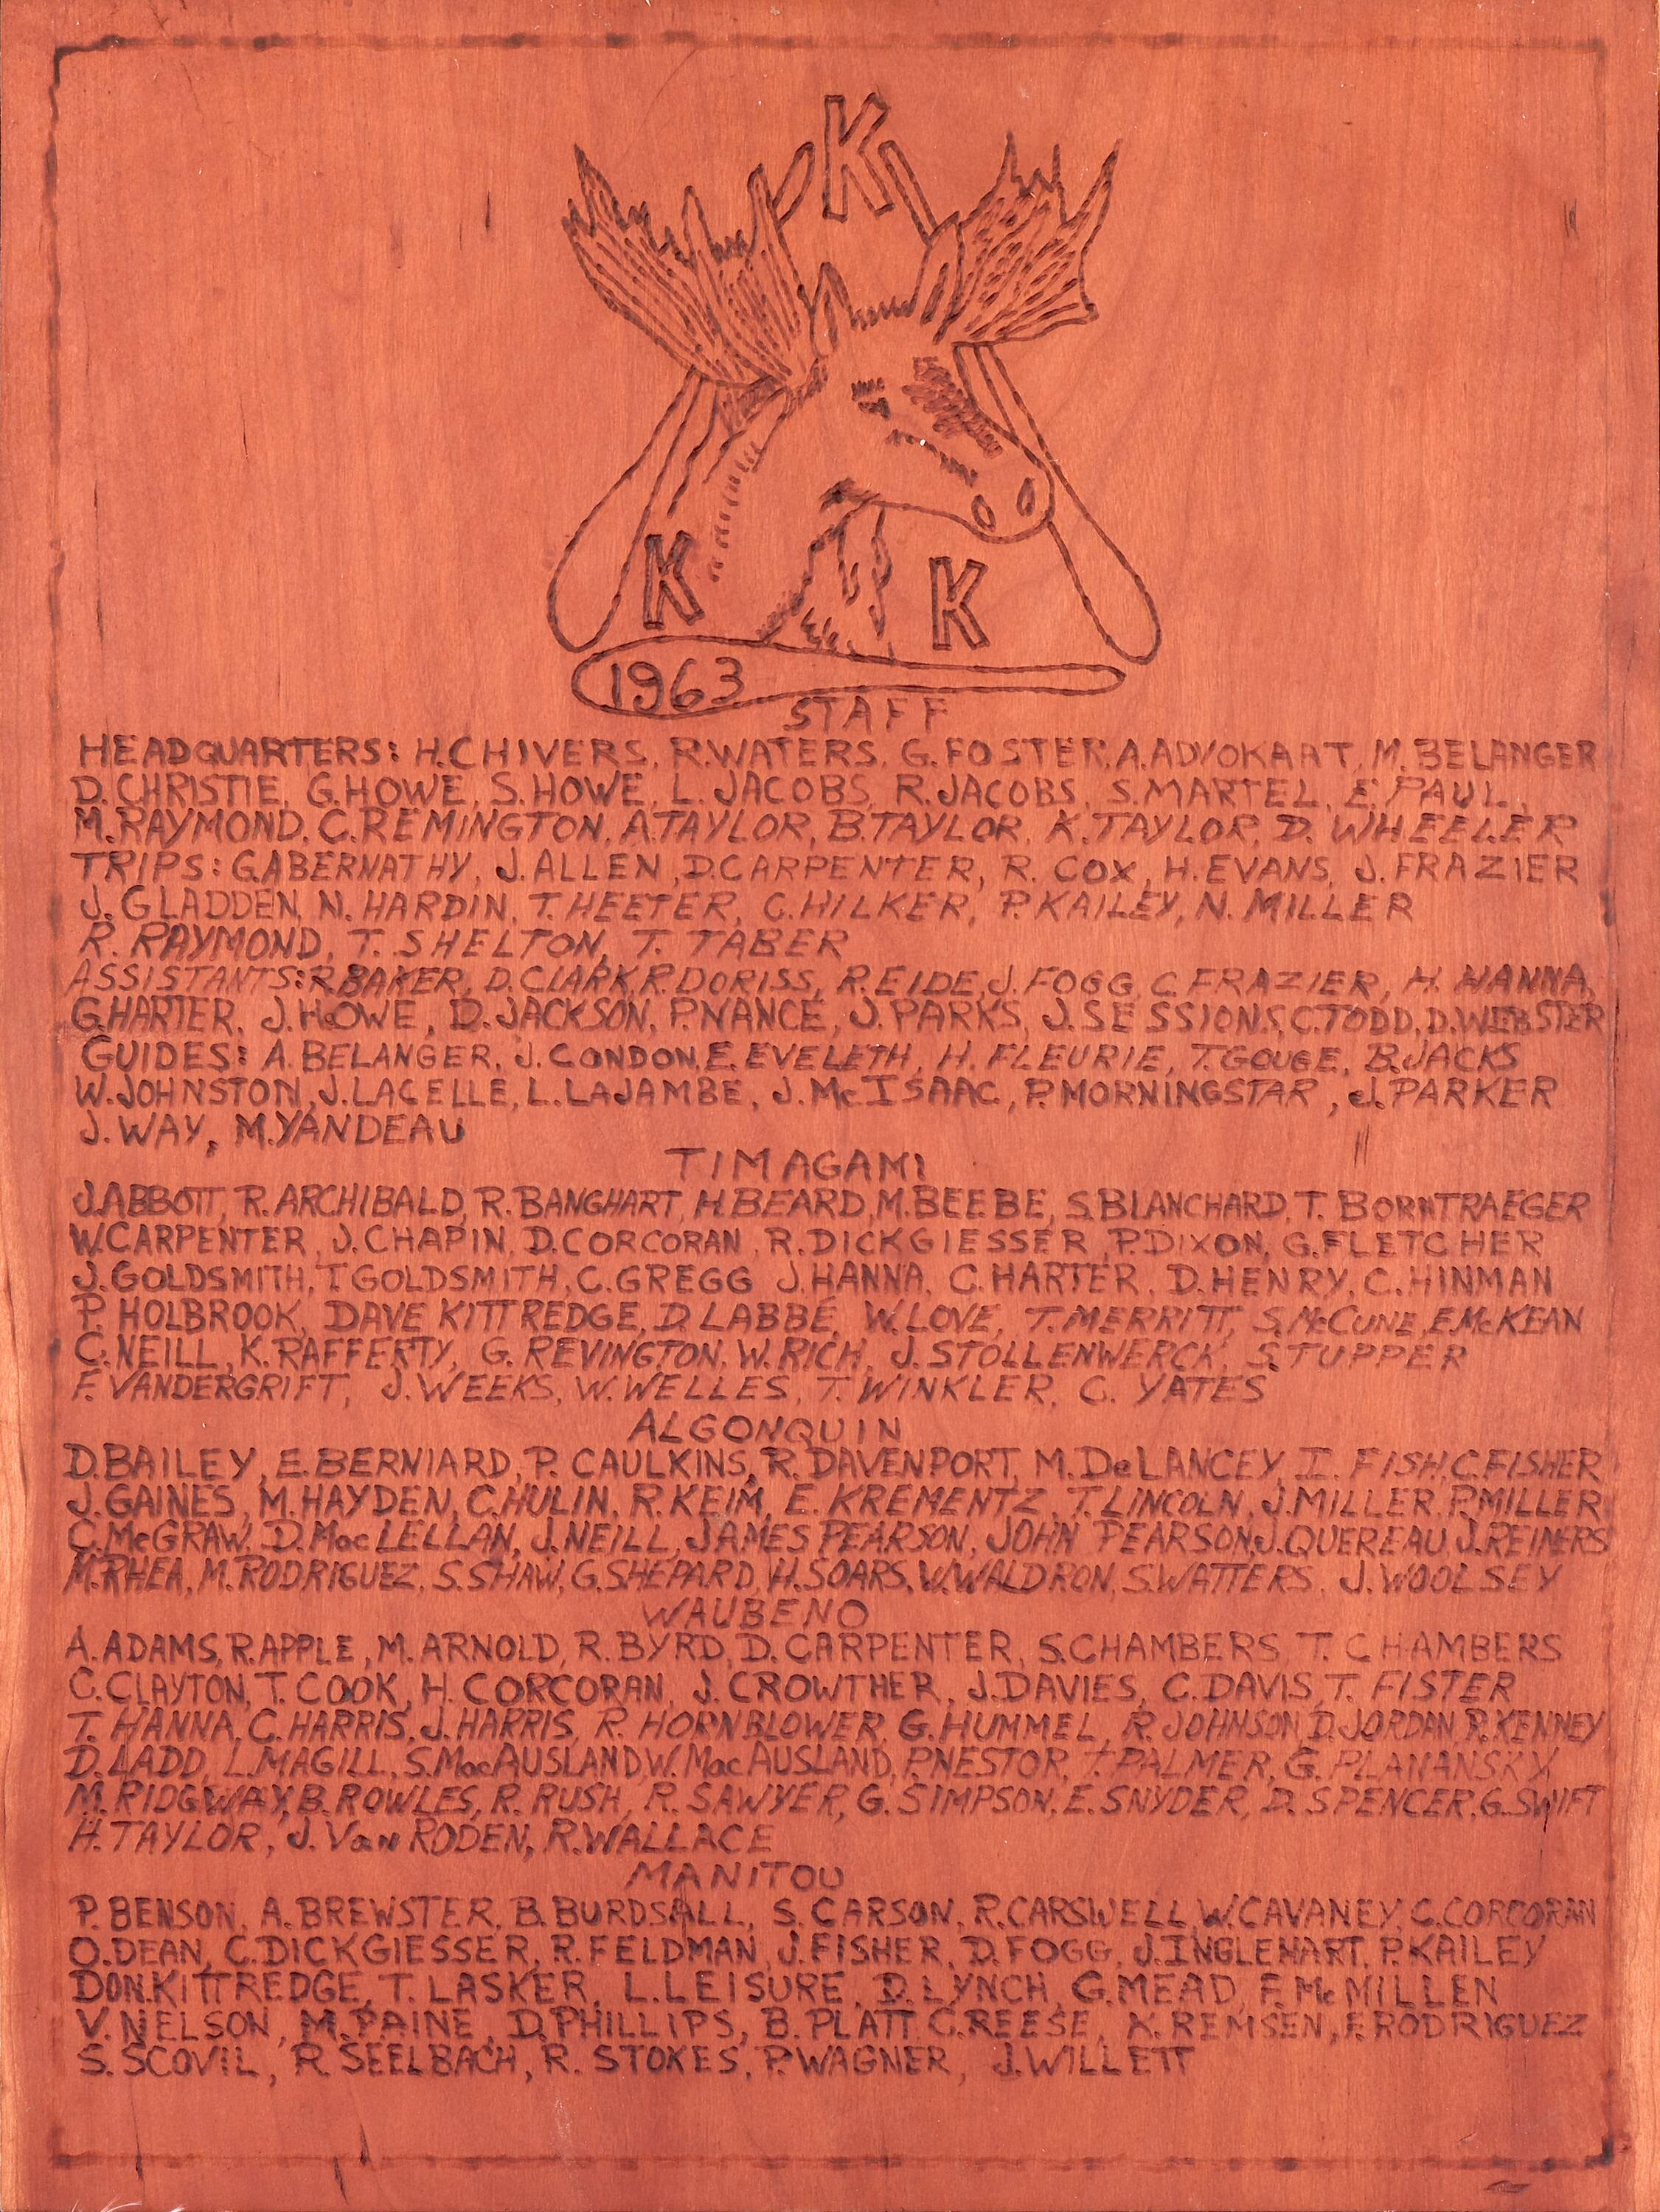 K
K K
1963
STAFF
HEADQUARTERS: H.CHIVERS, R.WATERS, G.FOSTER, A.ADVOKAAT, M.BELANGER
D.CHRISTIE, G.HOWE, S.HOWE, L.JACOBS, R.JACOBS, S.MARTEL, E.PAUL,
M.RAYMOND, C.REMINGTON, A.TAYLOR, B.TAYLOR, K.TAYLOR, D. WHEELER
TRIPS: G.ABERNATHY, J.ALLEN, D.CARPENTER, R. COX, H.EVANS, J.FRAZIER
J.GLADDEN, N.HARDIN, T.HEETER, C.HILKER, P.KAILEY, N.MILLER
R. RAYMOND, T. SHELTON, T. TABER
ASSISTANTS: R.BAKER, D.CLARK, R.DORISS, R.EIDE, J.FOGG, C.FRAZIER, H. HANNA,
G.HARTER, J.HOWE, D.JACKSON, P.NANCE, J.PARKS, J.SESSIONS, C.TODD, D.WEBSTER
GUIDES: A.BELANGER, J.CONDON, E.EVELETH, H.FLEURIE, T.GOUGE, B.JACKS
W.JOHNSTON, J.LACELLE, L.LAJAMBE, J.McISAAC, P.MORNINGSTAR, J.PARKER
J.WAY, M.YANDEAU
TIMAGAMI
J.ABBOTT, R.ARCHIBALD, R.BANGHART, H.BEARD, M.BEEBE, S.BLANCHARD, T. BORNTRAEGER
W.CARPENTER, J.CHAPIN, D.CORCORAN, R.DICKGIESSER, P.DIXON, G.FLETCHER
J.GOLDSMITH, T.GOLDSMITH, C.GREGG J.HANNA, C.HARTER, D.HENRY, C.HINMAN
P. HOLBROOK, DAVE KITTREDGE, D.LABBÉ, W.LOVE, T.MERRITT, S.McCUNE, E.McKEAN
C.NEILL, K.RAFFERTY, G.REVINGTON, W.RICH, J.STOLLENWERCK, S.TUPPER
F.VANDERGRIFT, J.WEEKS, W.WELLES, T.WINKLER, C. YATES
ALGONQUIN
D.BAILEY, E.BERNIARD, P. CAULKINS, R.DAVENPORT, M.DeLANCEY, I. FISH, C.FISHER
J.GAINES, M.HAYDEN, C.HULIN, R.KEIM, E. KREMENTZ, T.LINCOLN, J.MILLER, P.MILLER
C.McGRAW, D.MacLELLAN, J.NEILL, JAMES PEARSON, JOHN PEARSON, J.QUEREAU, J.REINERS
M.RHEA, M.RODRIGUEZ, S.SHAW, G.SHEPARD, H.SOARS, W.WALDRON, S.WATTERS, J.WOOLSEY
WAUBENO
A.ADAMS, R.APPLE, M.ARNOLD, R.BYRD, D.CARPENTER, S.CHAMBERS, T.CHAMBERS
C.CLAYTON, T.COOK, H.CORCORAN, J.CROWTHER, J.DAVIES, C.DAVIS, T. FISTER
T.HANNA, C.HARRIS, J.HARRIS, R. HORNBLOWER, G.HUMMEL, R.JOHNSON, D.JORDAN, R.KENNEY
D.LADD, L.MAGILL, S.MacAUSLAND, W.MacAUSLAND, P.NESTOR, T.PALMER, G. PLANANSKY
M.RIDGWAY, B.ROWLES, R.RUSH, R. SAWYER, G.SIMPSON, E.SNYDER, D.SPENCER, G.SWIFT
H.TAYLOR, J.VanRODEN, R.WALLACE
MANITOU
P.BENSON, A.BREWSTER, B.BURDSALL, S.CARSON, R.CARSWELL, W.CAVANEY, C.CORCORAN
O.DEAN, C.DICKGIESSER, R.FELDMAN, J.FISHER, D.FOGG, J.INGLEHART, P.KAILEY
DON.KITTREDGE, T. LASKER, L.LEISURE, D.LYNCH, G.MEAD, F.McMILLEN
V.NELSON, M.PAINE, D.PHILLIPS, B.PLATT C.REESE, K.REMSEN, F.RODRIGUEZ
S.SCOVIL, R.SEELBACH, R. STOKES, P.WAGNER, J.WILLETT